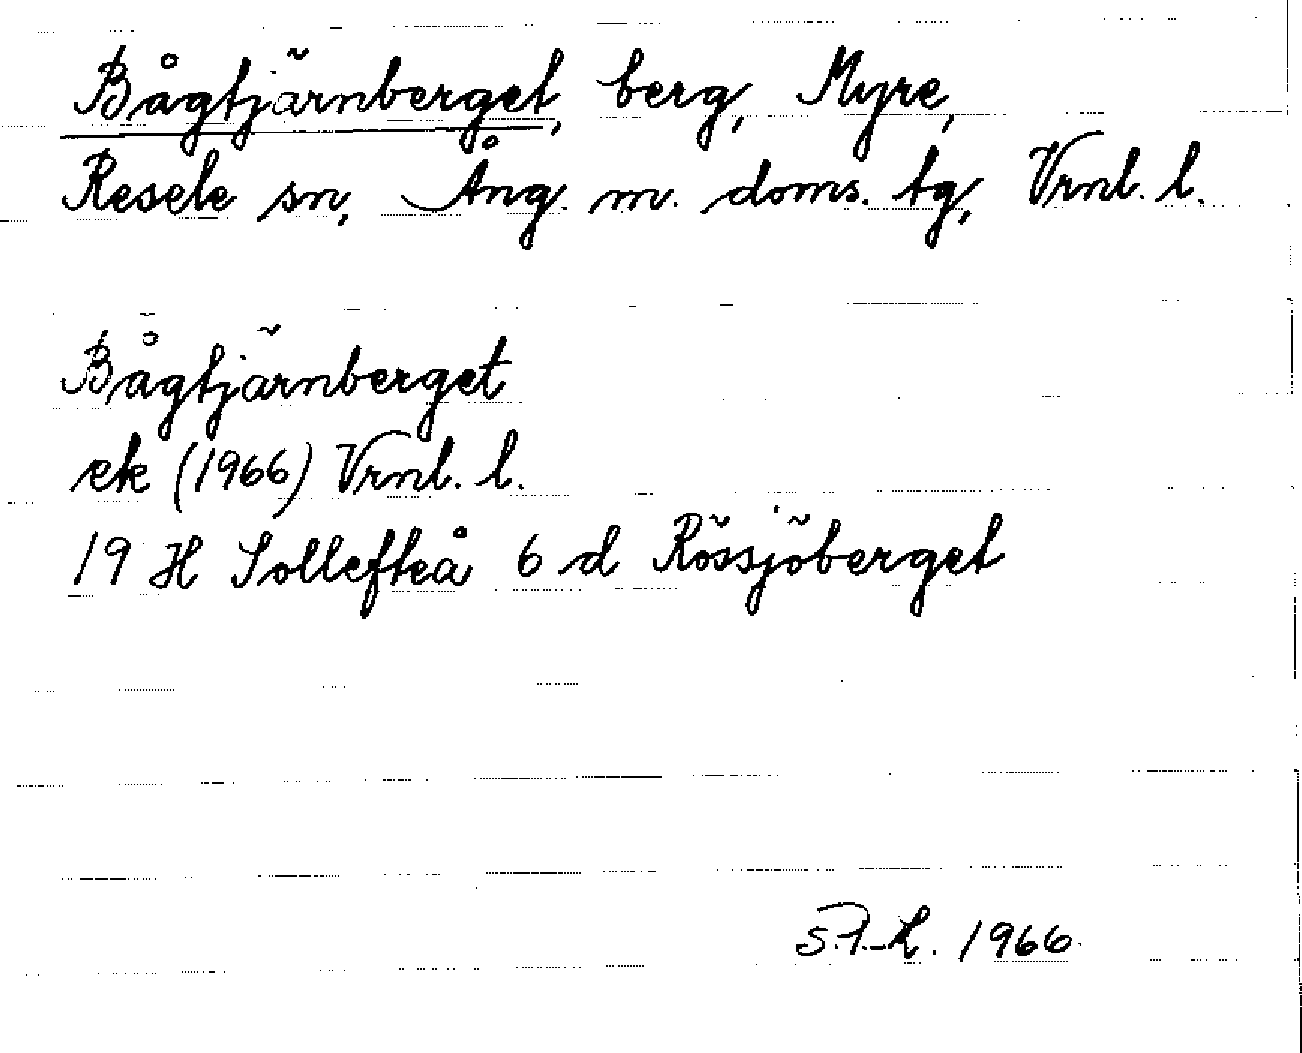 Bågtjärnberget, berg, Myre,
Resele sn, Ång. m. doms. tg, Vrnl. l.
Bågtjärnberget
ek (1966) Vrnl. l.
19 H Sollefteå 6 d Rössjöberget
1966